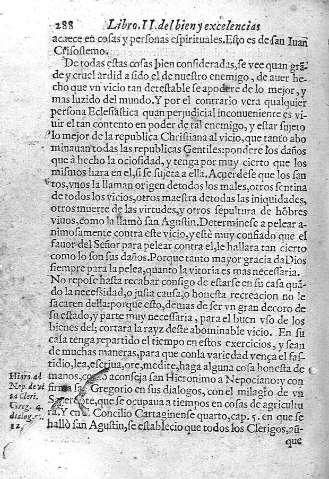 288 Libro. II. del bien y excelencias
acaece en cosas y personas espirituales. Esto es de san Iuan
Crisostemo.
De todas estas cosas bien consideradas, se vee quan grã-
de y cruel ardid a sido el de nuestro enemigo, de auer he-
cho que vn vicio tan detestable se apodere de lo mejor, y
mas luzido del mundo. Y por el contrario vera qualquier
persona Eclesiastica quan perjudicial inconueniente es vi-
uir el tan contento en poder de tal enemigo, y estar sujeto
lo mejor de la republica Christiana al vicio, que tanto abo
minauan todas las republicas Gentiles: pondere los daños
que à hecho la ociosidad, y tenga por muy cierto que los
mismos hara en el, si se sujeta a ella. Acuerdese que los san
tos, vnos la llaman origen de todos los males, otros sentina
de todos los vicios, otros maestra de todas las iniquidades,
otros muerte de las virtudes, y otros sepultura de hõbres
viuos, como la llamò san Agustin. Determinese a pelear a-
nimosamente contra este vicio, y estè muy confiado que el
fauor del Señor para pelear contra el, le hallara tan cierto
como lo son sus daños. Porque tanto mayor gracia da Dios
siempre para la pelea, quanto la vitoria es mas necessaria.
No repose hasta recabar consigo de estarse en su casa quã-
do la necessidad, o justa causa, o honesta recreacion no le
sacaren della: porque esto, demas de ser vn gran decoro de
su estado, y parte muy necessaria, para el buen vso de los
bienes del, cortara la rayz deste abominable vicio. En su
casa tenga repartido el tiempo en estos exercicios, y sean
de muchas maneras, para que con la variedad vença el fas-
tidio, lea, escriua, ore, medite, haga alguna cosa honesta de
manos, como aconseja san Hieronimo a Nepociano y con
firma san Gregorio en sus dialogos, con el milagro de vn
Sacerdote, que se ocupaua a tiempos en cosas de agricultu
ra. Y en el Concilio Cartaginense quarto, cap. 5. en que se
hallò san Agustin, se establecio que todos los Clerigos, aũ-
que
Hiero. ad
Nep. de vi
ta Cleri.
Greg. 4.
dialog. c.
12.